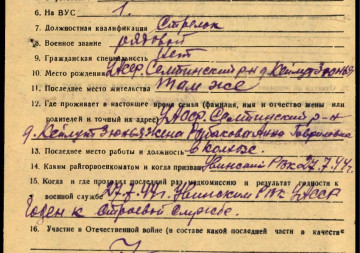 6. На ВУС 1.
7. Должностная квалификация Стрелок
8. Военное звание рядовой
9. Гражданская специальность нет
10. Место рождения УАССР. Селтинский р-н д.
11. Последнее место жительства Там же
12. Где проживает в настоящее время семья (фамилия, имя и отчество жены или
родителей и точный их адрес) УАССР. Селтинский р-н
д. жена Анна
13. Последнее место работы и должность в колхозе.
14. Каким райгорвоенкоматом и когда призван Увинский РВК 27.7.44г.
15. Когда и где проходил последний раз медкомиссию и результат годности к
военной службе 27.7.44г. Увинским РВК УАССР
Годен к строевой службе.
16. Участие в Отечественной войне (в составе какой последней части и в качестве